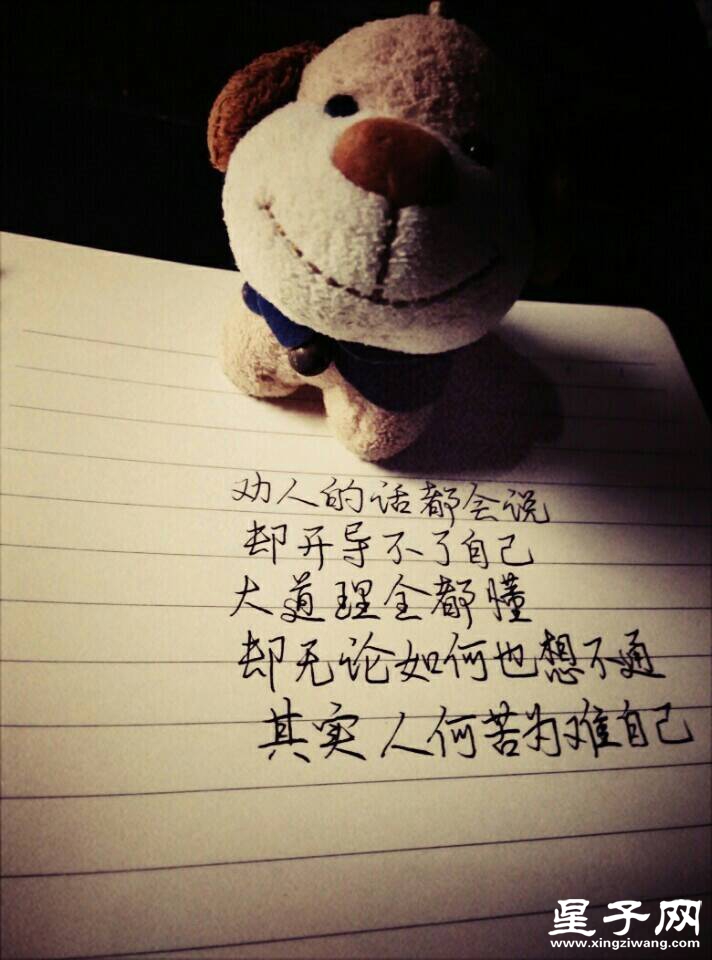 劝人的话都会说
却开导不了自己
大道理全都懂
却无论如何也想不通
其实人何苦为难自己
星子网
www.xingziwang.com